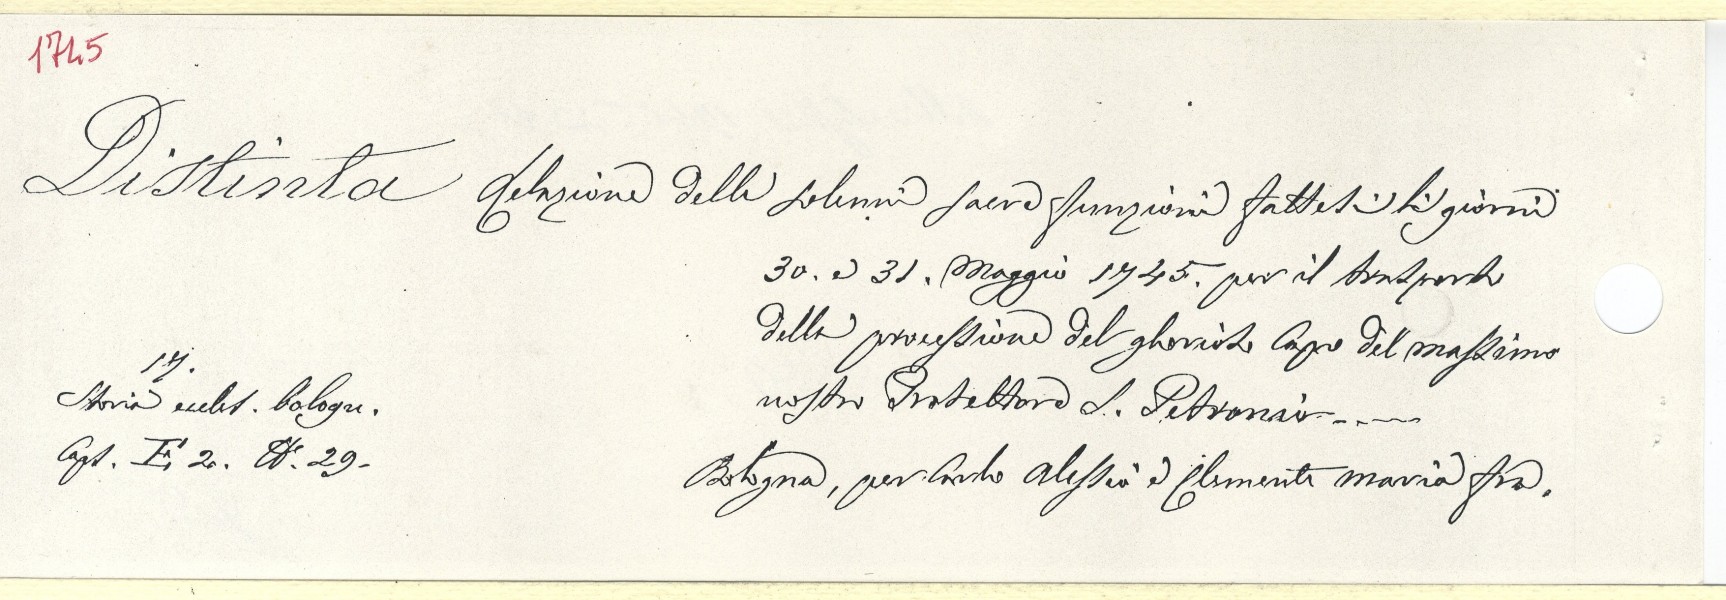 1745
Distinta Relazione delle solenni sacre funzioni fattesi li giorni
30. e 31. Maggio 1745. per il trasporto
della processione del glorioso Capo del massimo
nostro Protettore S. Petronio
17.
Storia eccles. bologn.
Caps. E 2. N. 29.
Bologna, per Carlo Alessio e Clemente Maria fra.